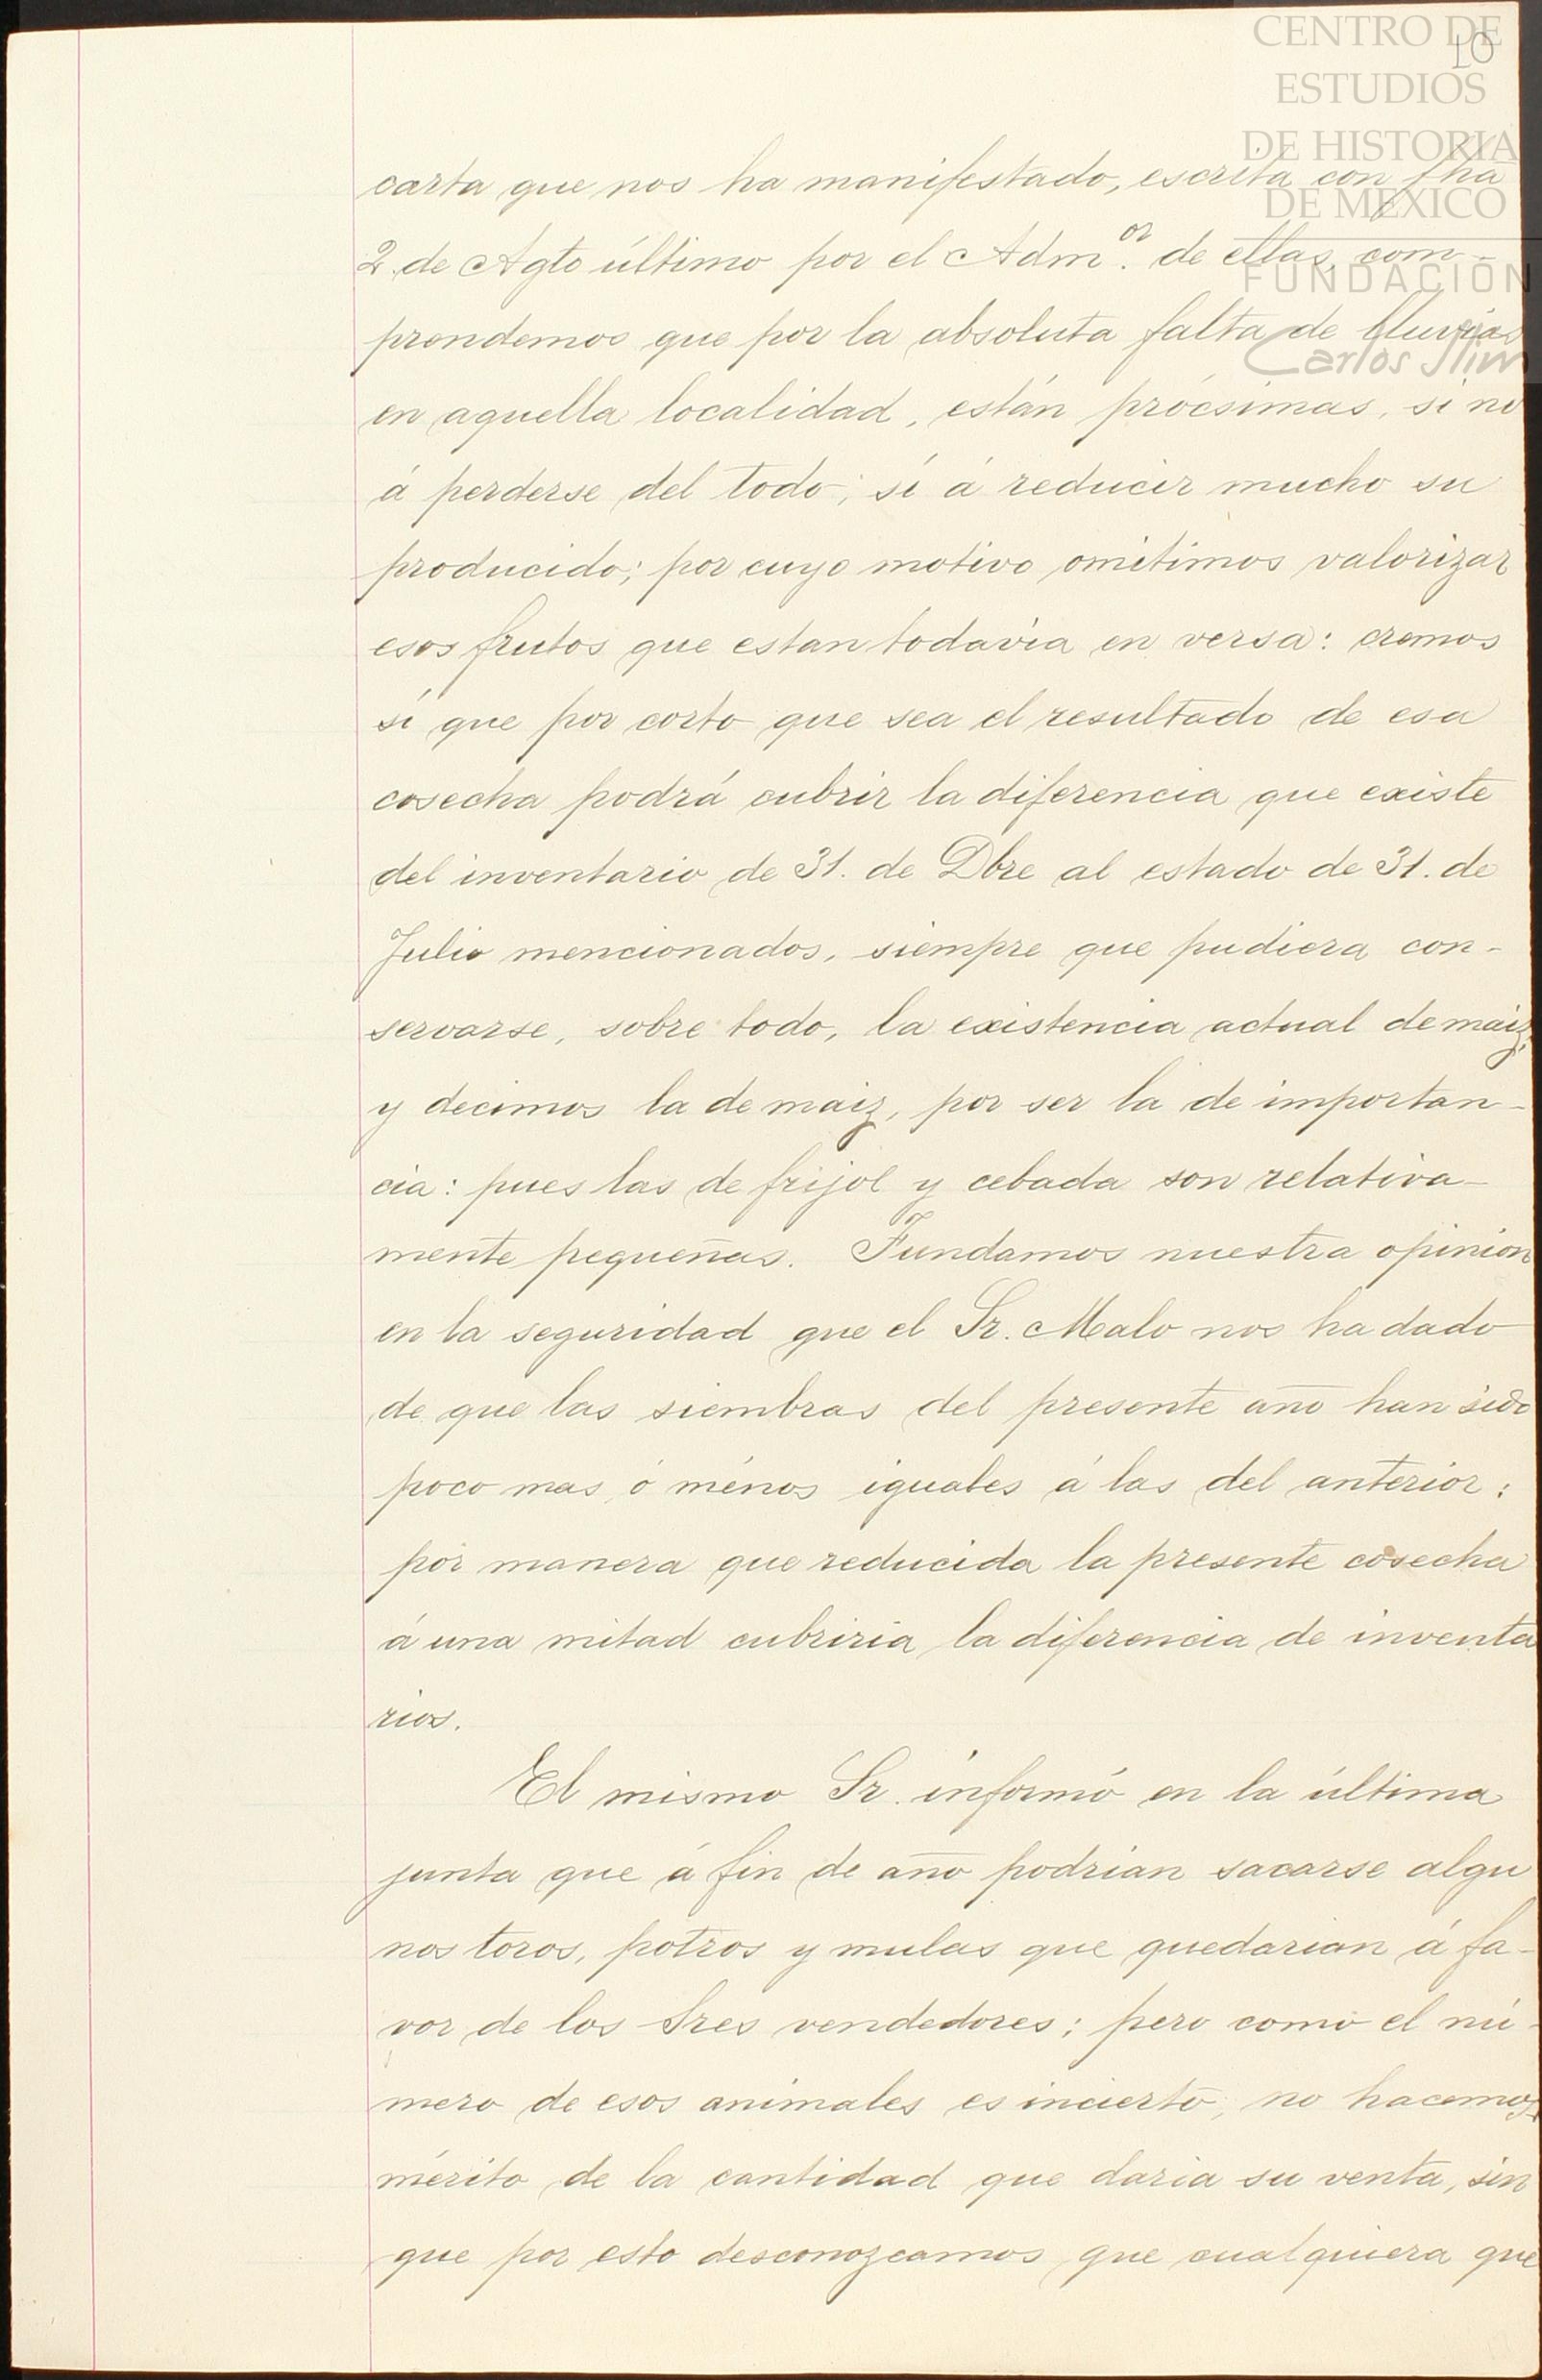 CENTRO DE
ESTUDIOS
DE HISTORIA
DE MEXICO
FUNDACION
Carlos Slim
10
carta que nos ha manifestado, escrita con fha
2 de Agto último por el Adm.or de ellas, com-
prendemos que por la absoluta falta de lluvias
en aquella localidad, están prócsimas, si no
á perderse del todo; si á reducir mucho su
producido; por cuyo motivo omitimos valorizar
esos frutos que estan todavia en versa: cremos
sí que por corto que sea el resultado de esa
cosecha podrá cubrir la diferencia que existe
del inventario de 31. de Dbre al estado de 31. de
Julio mencionados, siempre que pudiera con-
servarse, sobre todo, la existencia actual de maiz,
y decimos la de maiz, por ser la de importan-
cia: pues las de frijol y cebada son relativa-
mente pequeñas. Fundamos nuestra opinion
en la seguridad que el Sr. Malo nos ha dado
de que las siembras del presente año han sido
poco mas ó ménos iguales á las del anterior:
por manera que reducida la presente cosecha
á una mitad cubriria la diferencia de inventa
rios.
El mismo Sr. informó en la última
junta que á fin de año podrian sacarse algu
nos toros, potros y mulas que quedarian á fa-
vor de los Sres vendedores; pero como el nú-
mero de esos animales es incierto, no hacemos
mérito de la cantidad que daria su venta, sin
que por esto desconozcamos que cualquiera que